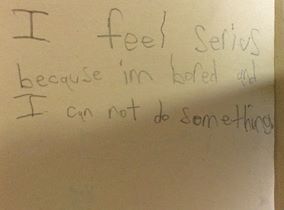 I feel serius
because im bored and
I can not do something